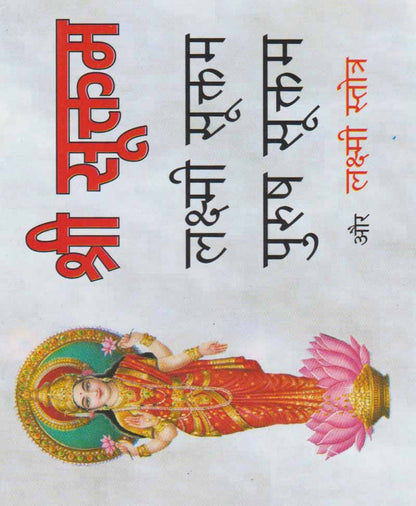 श्री सूक्तम
लक्ष्मी सूक्तम
पुरुष सूक्तम
और लक्ष्मी स्तोत्र